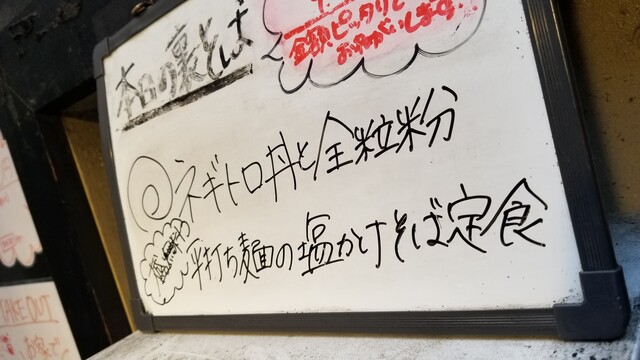 本日の裏そば
金額ピッタリで
おねがいします!!
ネギトロ丼と全粒粉
平打ち麺の塩かけそば定食
TAKE OUT